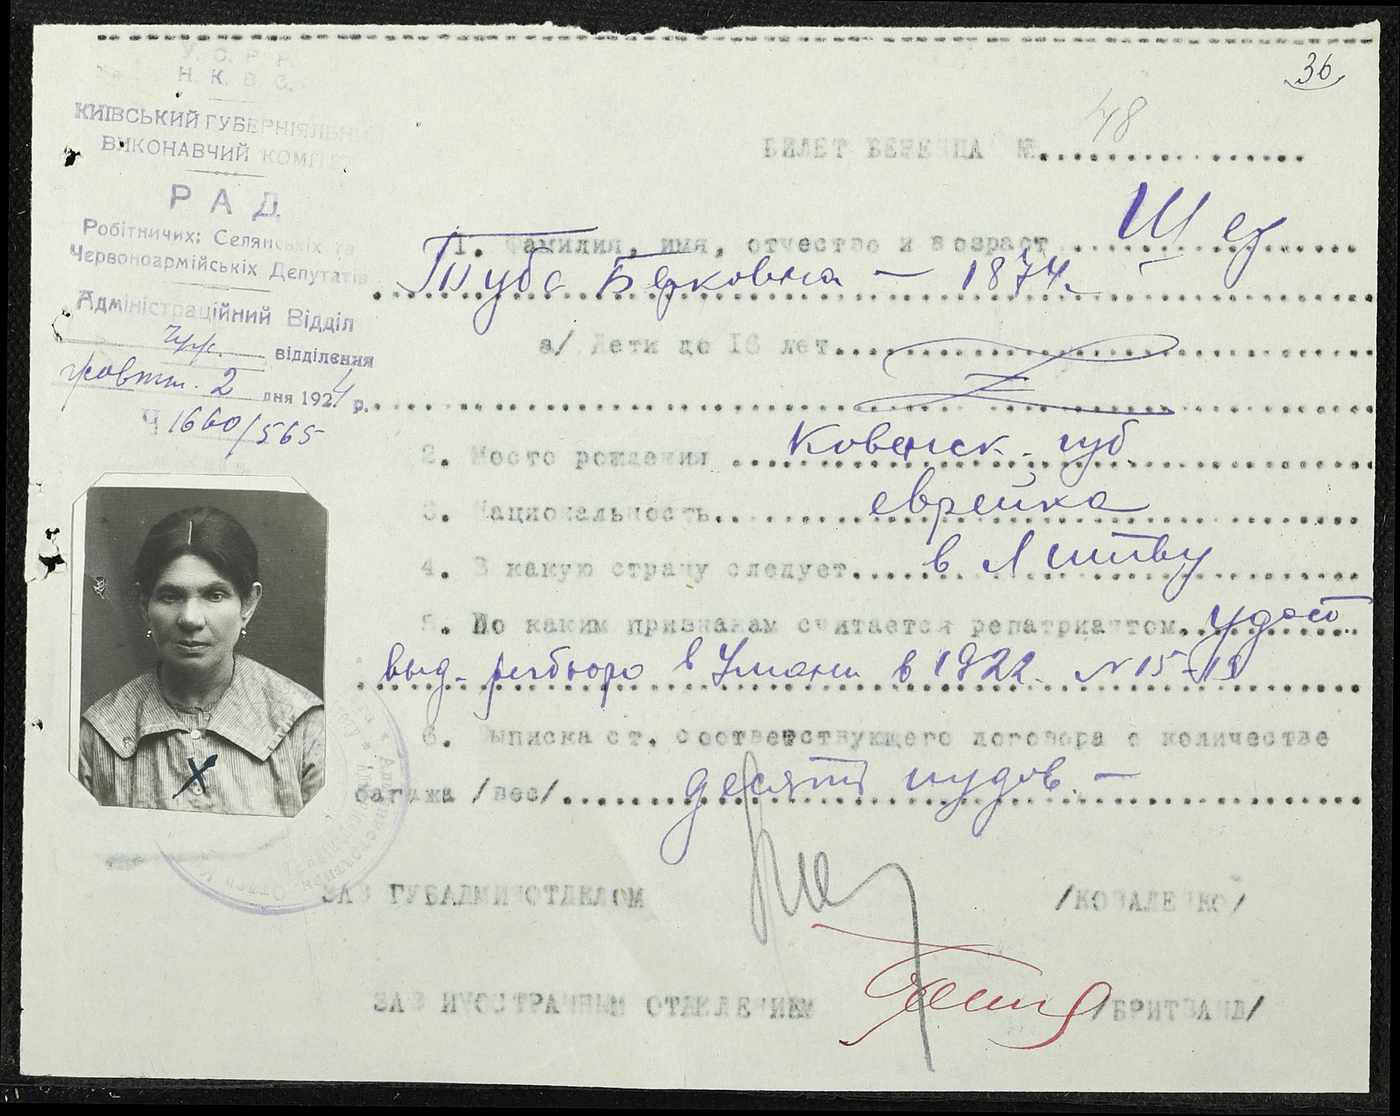 36
У. С. Р. Р.
Н. К. В. С.
КИЇВСЬКИЙ ГУБЕРНІЯЛЬНИЙ
ВИКОНАВЧИЙ КОМІТЕТ
РАД
Робітничих; Селянськіх та
Червоноармійськіх Депутатів
Адміністраційний Відділ
відділення
жовтн. 2 дня 1924 р.
Ч 1660/565
БИЛЕТ БЕЖЕНЦА № 48
1. Фамилия, имя, отчество и возраст Шер
Туба Берковна — 1874.
а/ Дети до 16 лет
2. Место рождения Ковенск. губ
3. Национальность еврейка
4. В какую страну следует в Литву
5. По каким признакам считается репатриантом удост.
выд. в Умани в 1922. N 15-19
6. Выписка ст. соответствующего договора о количестве
багажа /вес/ десять пудов. —
ЗАВ ГУБАДМИНОТДЕЛОМ /КОВАЛЕНКО/
ЗАВ ИНОСТРАННЫМ ОТДЕЛЕНИЕМ /БРИТВАНД/